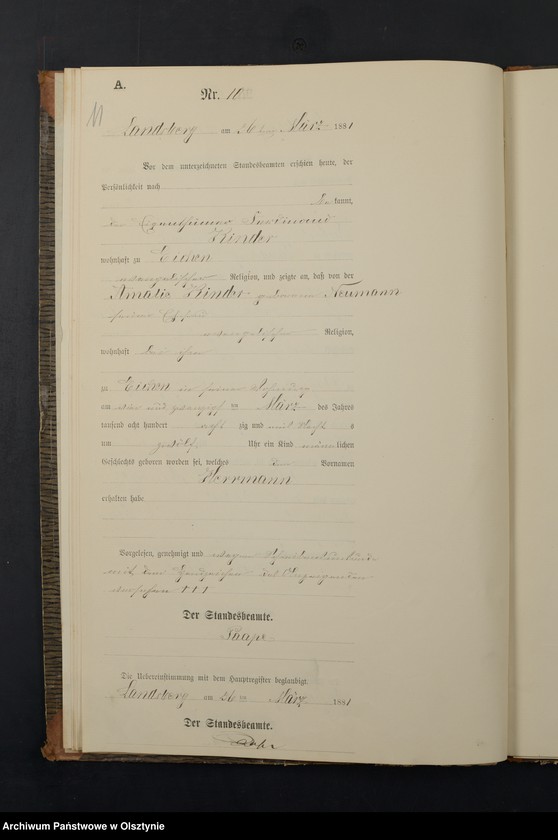 A.
11
Nr. 10
Landsberg am 26ten März 1881
Vor dem unterzeichneten Standesbeamten erschien heute, der
Persönlichkeit nach
kannt,
der Eigenthümer Ferdinand
Kinder
wohnhaft zu Eichen
evangelischer Religion, und zeigte an, daß von der
Amalie Kinder geborenen Neumann
seiner Ehefrau
evangelischer Religion,
wohnhaft bei ihm
zu Eichen in seiner Wohnung
am vier und zwanzigsten März des Jahres
tausend acht hundert acht zig und eins Nachts
um zwölf Uhr ein Kind männlichen
Geschlechts geboren worden sei, welches den Vornamen
Herrmann
erhalten habe
Vorgelesen, genehmigt und wegen
mit dem Handzeichen des
versehen † † †
Der Standesbeamte.
Die Uebereinstimmung mit dem Hauptregister beglaubigt.
Landsberg am 26ten März 1881
Der Standesbeamte.
Archiwum Państwowe w Olsztynie